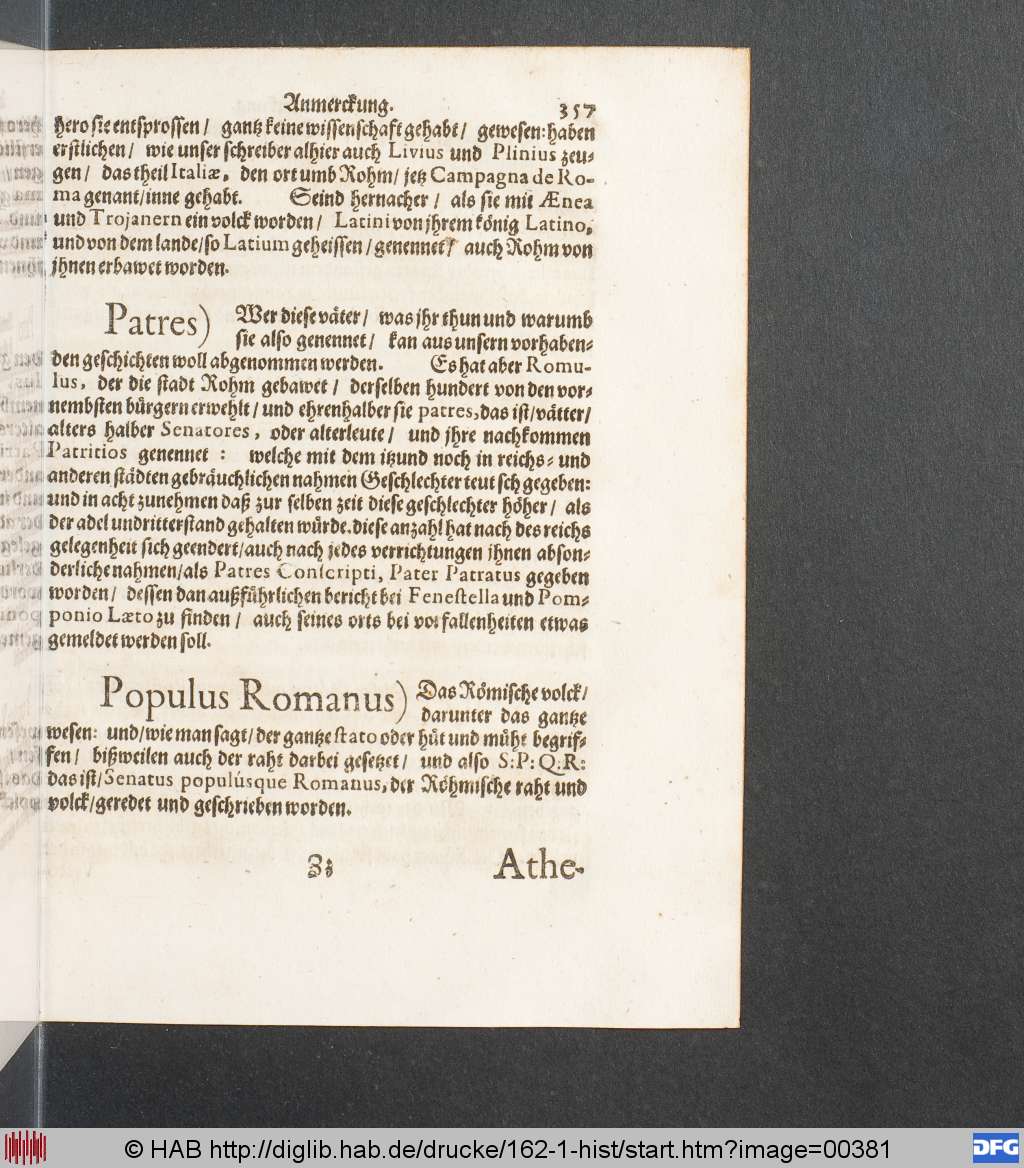 Anmerckung. 357
hero sie entsprossen / gantz keine wissenschaft gehabt / gewesen: haben
erstlichen / wie unser schreiber alhier auch Livius und Plinius zeu-
gen / das theil Italiæ, den ort umb Rohm / jetz Campagna de Ro-
ma genant / inne gehabt. Seind hernacher / als sie mit Ænea
und Trojanern ein volck worden / Latini von jhrem könig Latino,
und von dem lande / so Latium geheissen / genennet / auch Rohm von
jhnen erbawet worden.
Patres) Wer diese väter / was jhr thun und warumb
sie also genennet / kan aus unsern vorhaben-
den geschichten woll abgenommen werden. Es hat aber Romu-
lus, der die stadt Rohm gebawet / derselben hundert von den vor-
nembsten bürgern erwehlt / und ehrenhalber sie patres, das ist / vätter /
alters halber Senatores, oder alterleute / und jhre nachkommen
Patritios genennet : welche mit dem itzund noch in reichs- und
anderen städten gebräuchlichen nahmen Geschlechter teutsch gegeben:
und in acht zunehmen daß zur selben zeit diese geschlechter höher / als
der adel und ritterstand gehalten würde. diese anzahl hat nach des reichs
gelegenheit sich geendert / auch nach jedes verrichtungen jhnen abson-
derliche nahmen / als Patres Conscripti, Pater Patratus gegeben
worden / dessen dan außführlichen bericht bei Fenestella und Pom-
ponio Læto zu finden / auch seines orts bei vorfallenheiten etwas
gemeldet werden soll.
Populus Romanus) Das Römische volck /
darunter das gantze
wesen: und / wie man sagt / der gantze stato oder hüt und müht begrif-
fen / bißweilen auch der raht darbei gesetzet / und also S:P:Q:R:
das ist / Senatus populúsque Romanus, der Röhmische raht und
volck / geredet und geschrieben worden.
Z iij Athe-
© HAB http://diglib.hab.de/drucke/162-1-hist/start.htm?image=00381
DFG